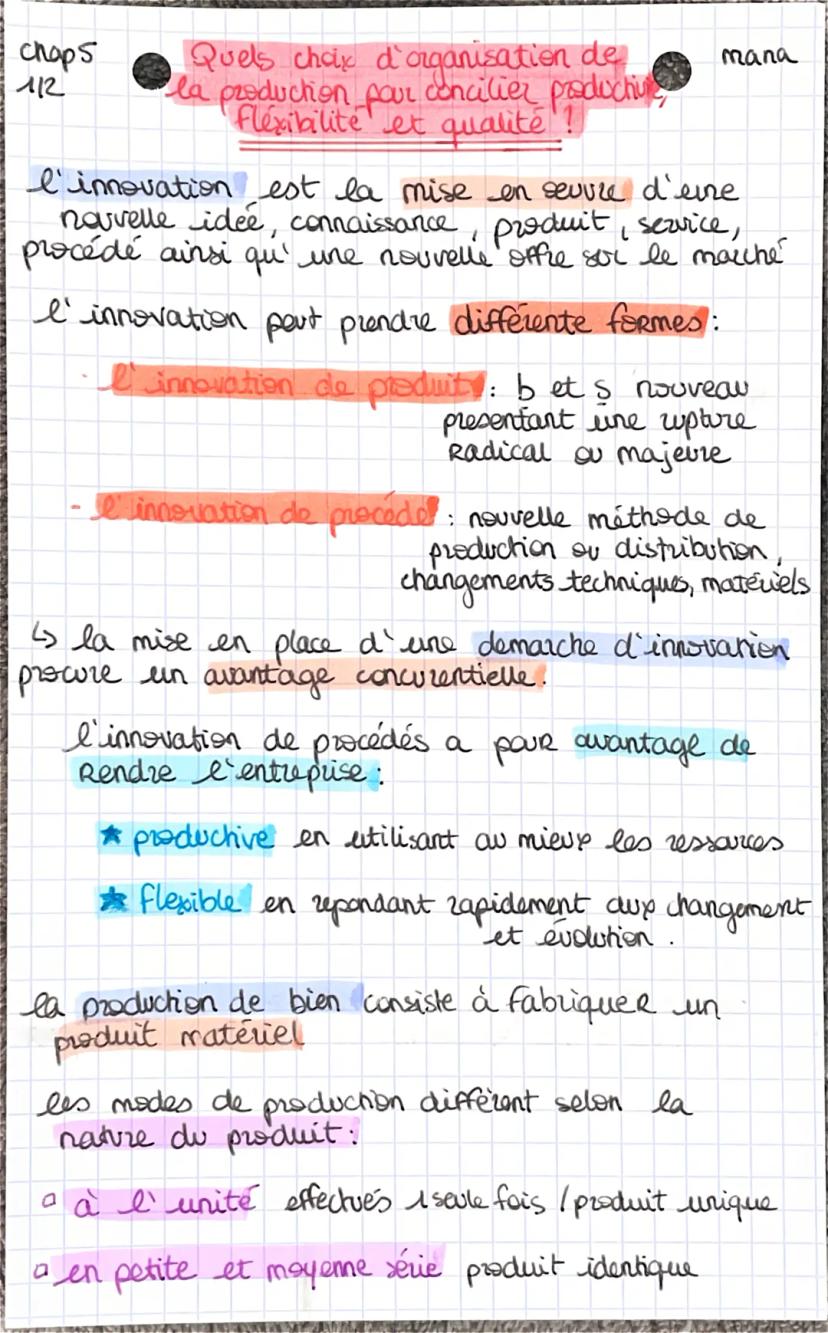 chap 5
1/2
mana
Quels choix d'organisation de
la production pour concilier productivité,
fléxibilité et qualité ?
l'innovation est la mise en oeuvre d'une
nouvelle idée, connaissance, produit, service,
procédé ainsi qu'une nouvelle offre sur le marché
l'innovation peut prendre différente formes :
- l'innovation de produit : b et s nouveau
presentant une rupture
Radical ou majeure
- l'innovation de procédé : nouvelle méthode de
production ou distribution,
changements techniques, matériels
↳ la mise en place d'une demarche d'innovation
procure un avantage concurentielle.
l'innovation de procédés a pour avantage de
Rendre l'entreprise :
★ productive en utilisant au mieux les ressources
★ flexible en repondant rapidement aux changement
et évolution.
la production de bien consiste à fabriquer un
produit matériel
les modes de production différent selon la
nature du produit :
▫ à l'unité effectués 1 seule fois / produit unique
▫ en petite et moyenne série produit identique